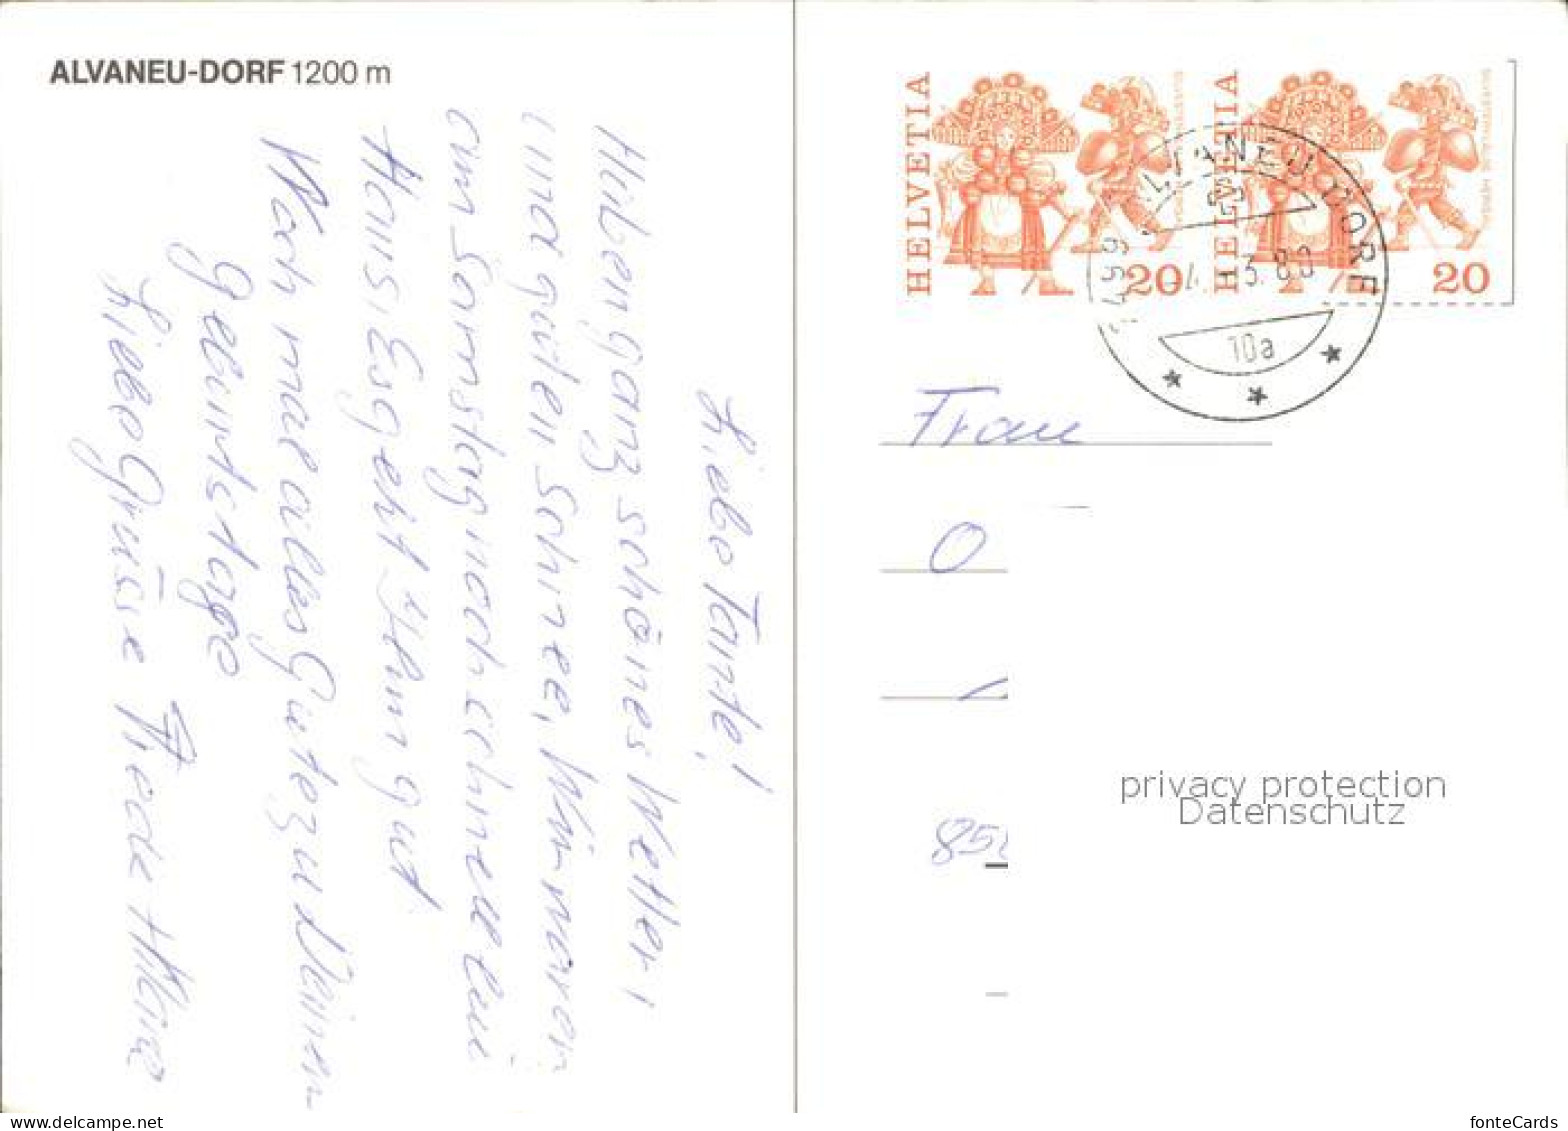 ALVANEU-DORF 1200 m
Liebe Tante!
Haben ganz schönes Wetter,
und guten Schnee, Wir waren
am Samstag noch schnell
Haus, Es geht Ihm gut.
Noch mal alles Gute zu Deinem
Gebiurtstage
Liebe Grüsse
HELVETIA
20
HELVETIA
20
ALVANEU DORF
3.80
10a
Frau
O
privacy protection
Datenschutz
www.delcampe.net
fonteCards